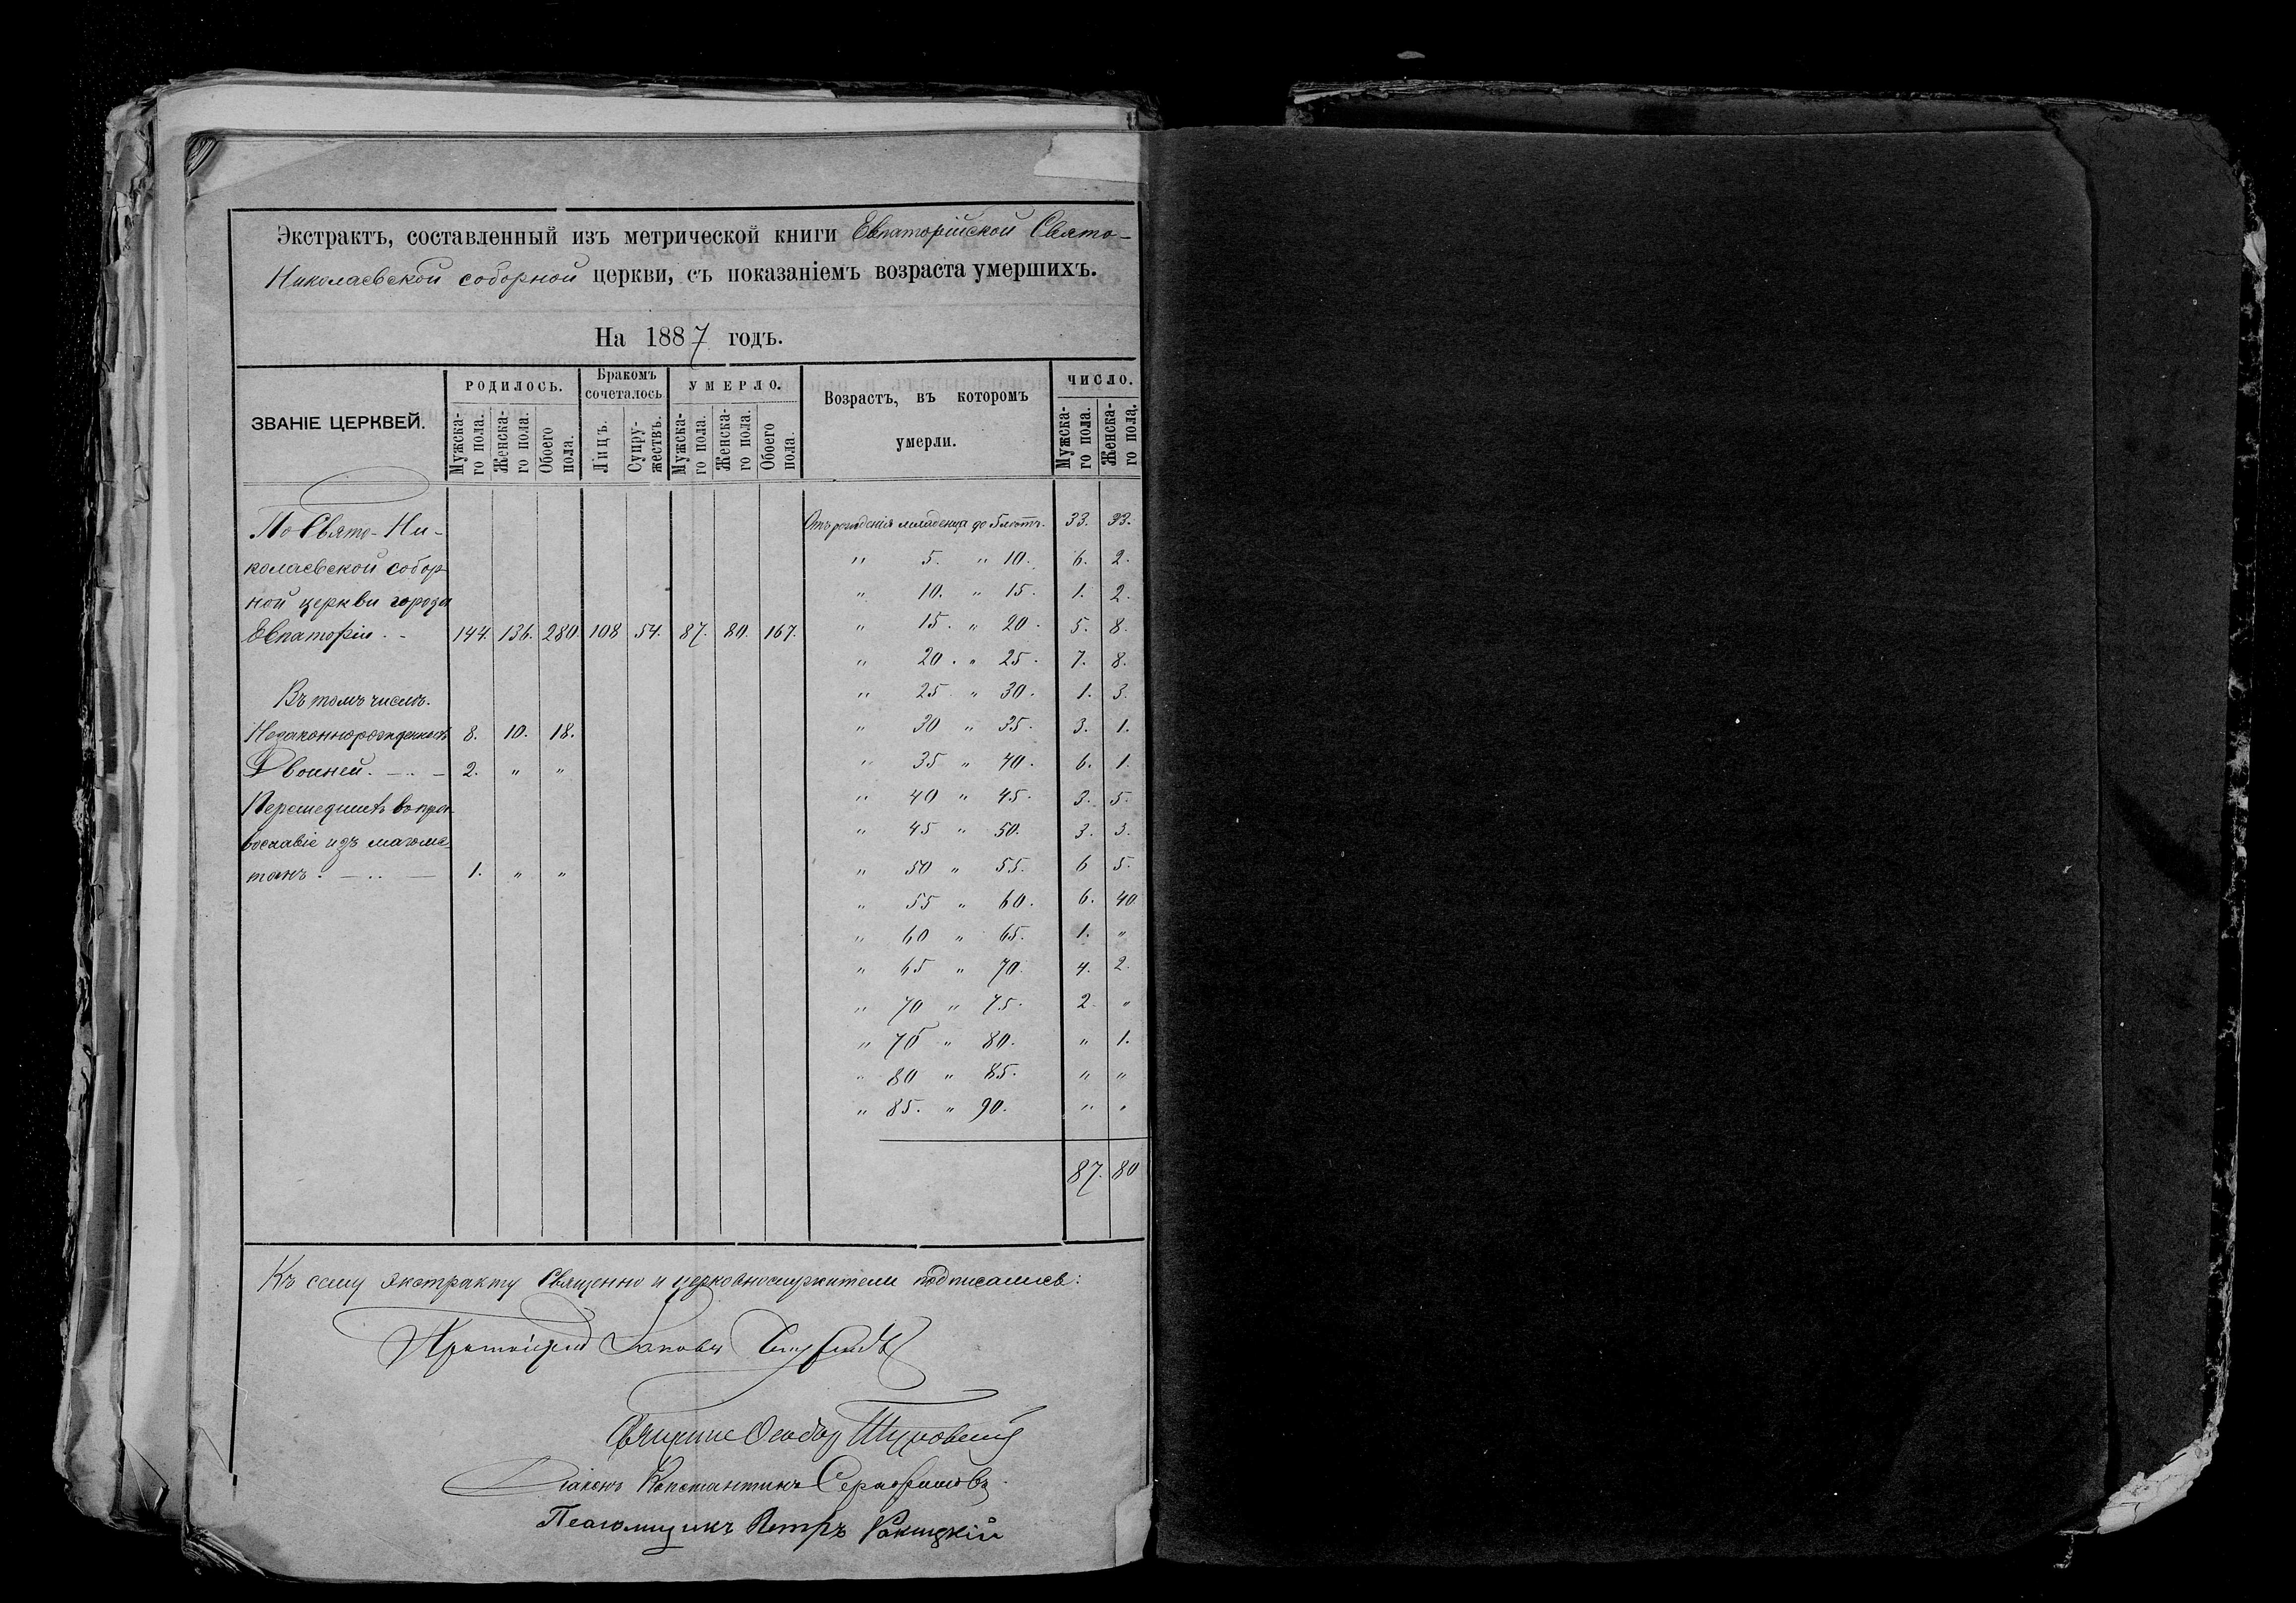 Экстрактъ, составленный изъ метрической книги Евпаторійской Свято-
Николаевской соборной церкви, съ показаніемъ возраста умершихъ.
На 1887 годъ.
ЗВАНІЕ ЦЕРКВЕЙ. РОДИЛОСЬ. Бракомъ сочеталось УМЕРЛО. Возрастъ, въ которомъ умерли. ЧИСЛО.
Мужска-го пола. Женска-го пола. Обоего пола. Лицъ. Супру-жествъ. Мужска-го пола. Женска-го пола. Обоего пола. Мужска-го пола. Женска-го пола.
По Свято-Ни-
колаевской собор
ной церкви города
Евпаторіи . . 144. 136. 280. 108 54. 87. 80. 167.
Въ томъ числѣ.
Незаконнорожденныхъ 8. 10. 18.
Двойней. 2. " "
Перешедшихъ въ пра
вославіе изъ магоме
танъ. 1. " "
Отъ рожденія младенца до 5 лѣтъ. 33. 33.
" 5. " 10. 6. 2.
" 10. " 15. 1. 2.
" 15. " 20. 5. 8.
" 20. " 25. 7. 8.
" 25 " 30. 1. 3.
" 30 " 35. 3. 1.
" 35 " 40. 6. 1.
" 40 " 45. 3. 5.
" 45 " 50. 3. 3.
" 50 " 55. 6 5.
" 55 " 60. 6. 40
" 60 " 65. 1. "
" 65 " 70. 4. 2.
" 70 " 75. 2. "
" 75 " 80. " 1.
" 80 " 85. " "
" 85. " 90. " "
87. 80
Къ сему экстракту Священно и церковнослужители подписались:
Протоіерей Іаковъ
Священникъ Ѳеодоръ
Діаконъ Константинъ Серафимовъ.
Псаломщикъ Петръ Ракицкій